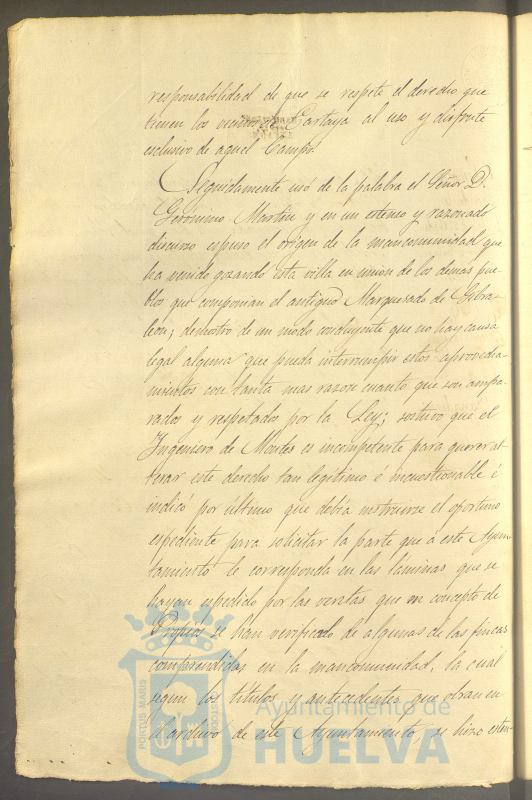 responsabilidad de que se respete el derecho que
tienen los vecinos de Cartaya al uso y disfrute
esclusivo de aquel Campo.
Seguidamente usó de la palabra el Señor D.
Geronimo Martin y en un estenso y razonado
discurso espuso el origen de la mancomunidad que
ha venido gozando esta villa en union de los demas pue-
blos que componian el antiguo Marquesado de Gibra-
leon; demostro de un modo concluyente que no hay causa
legal alguna que pueda interrumpir estos aprovecha-
mientos con tanta mas razon cuanto que son ampa-
rados y respetados por la Ley; sostuvo que el
Ingeniero de Montes es incompetente para querer al-
terar este derecho tan legitimo é incuestionable é
indicó por último que debia instruirse el oportuno
espediente para solicitar la parte que á este Ayun-
tamiento le corresponda en las láminas que se
hayan espedido por las ventas que en concepto de
Propios se han verificado de algunas de las fincas
comprendidas en la mancomunidad, la cual
segun los titulos y antecedentes que obran en
el archivo de este Ayuntamiento, se hizo esten-
PORTUS MARIS
CUSTODIA
Ayuntamiento de
HUELVA